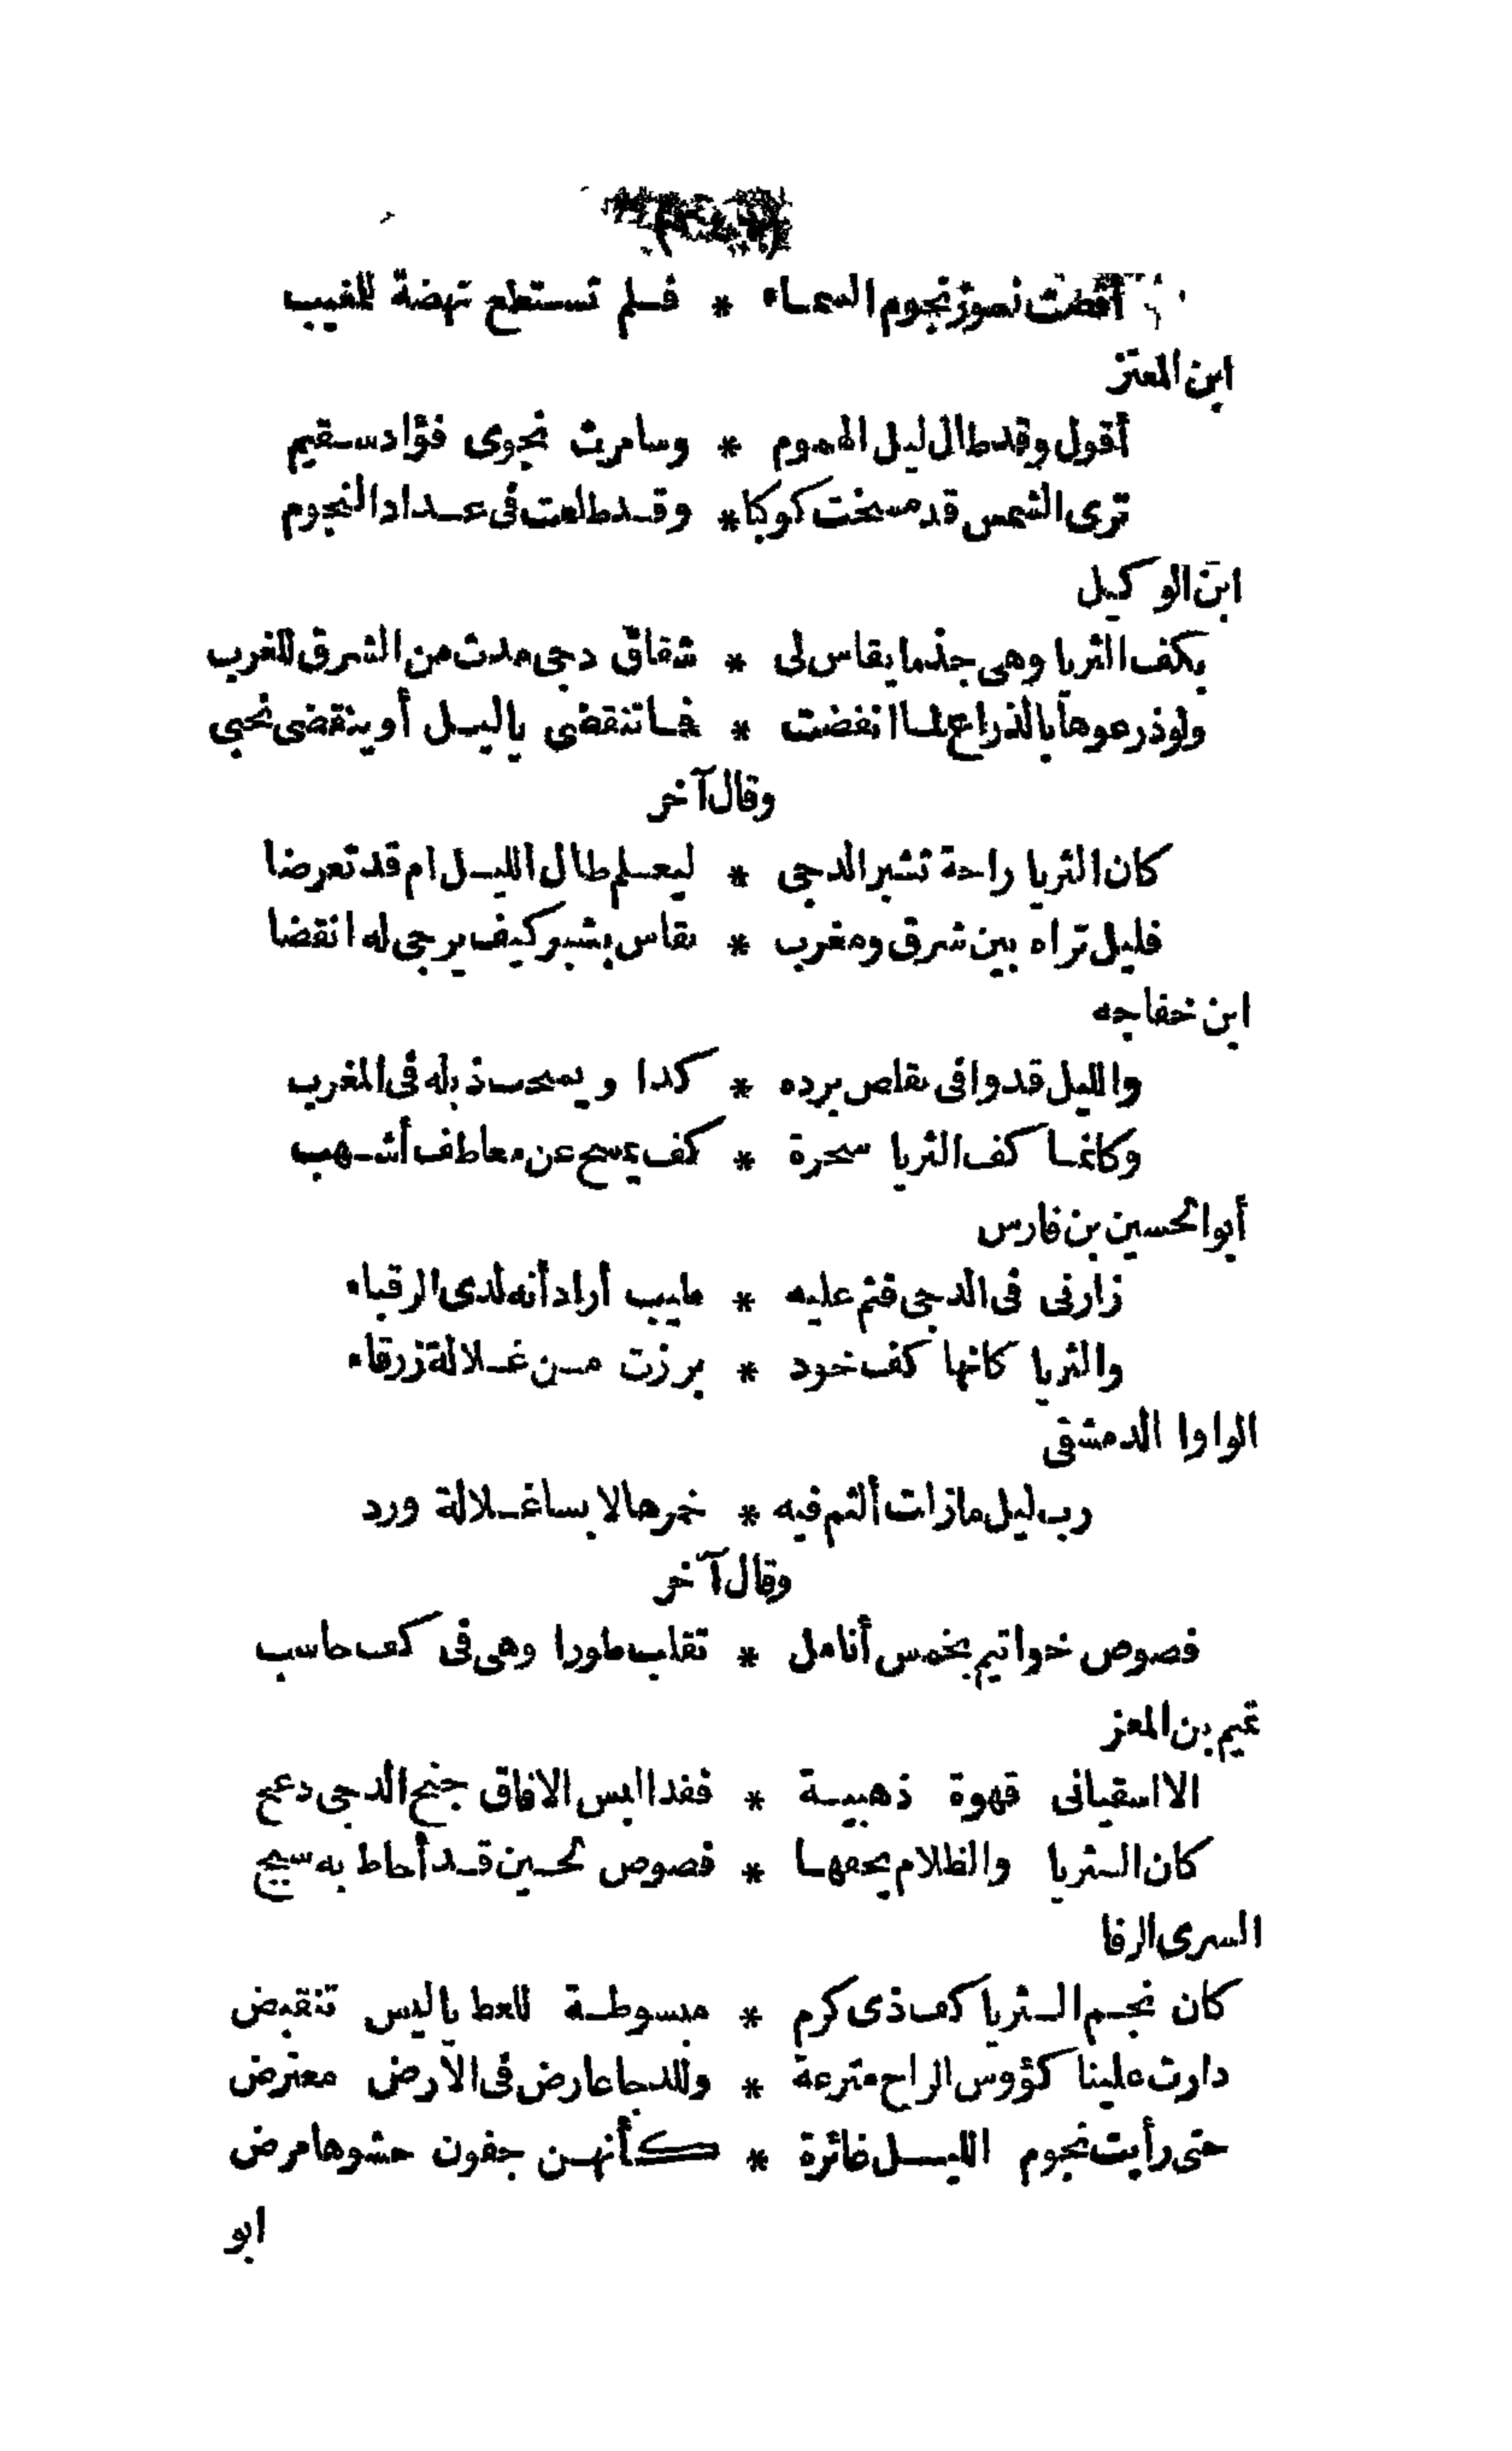 أقصت نسور نجوم السماء * فلم تستطع نهضة للغيب
ابن المعتز
أقول وقد طال ليل الهموم * وسامرت نجوى فؤاد سقيم
ترى الشمس قد مسخت كوكبا * وقد طلعت فى عداد النجوم
ابن الوكيل
بكف الثريا وهى جذما يقاس لى * شقاق دجى مدت من الشرق للغرب
ولو ذرعوها بالذراع لما انفضت * فما تنقضى ياليل أو ينقضى نحبى
وقال آخر
كان الثريا راحة تشبر الدجى * ليعلم طال الليل ام قد تعرضا
فليل تراه بين شرق ومغرب * يقاس بشبر كيف يرجى له انقضا
ابن خفاجه
والليل قد وافى يقلص برده * كدا ويسحب ذيله فى المغرب
وكانما كف الثريا سحرة * كف يمسح عن معاطف أشهب
أبو الحسين بن فارس
زارنى فى الدجى فنم عليه * طيب أرادنه لدى الرقباء
والثريا كانها كف خود * برزت من غلالة زرقاء
الواوا الدمشقى
رب ليل مازلت ألثم فيه * خمرها لابسا غلالة ورد
وقال آخر
فصوص خواتيم بخمس أنامل * تقلب طورا وهى فى كف حاسب
تميم بن المعز
الا اسقيانى قهوة ذهبية * فقد البس الافاق جنح الدجى دعج
كان الثريا والظلام يحفها * فصوص لجين قد أحاط به سبج
السرى الرفا
كان نجم الثريا كف ذى كرم * مبسوطة للعطايا ليس تنقبض
دارت علينا كؤوس الراح مترعة * وللدجا عارض فى الارض معترض
حتى رأيت نجوم الليل غائرة * كأنهن جفون حشوها مرض
ابو